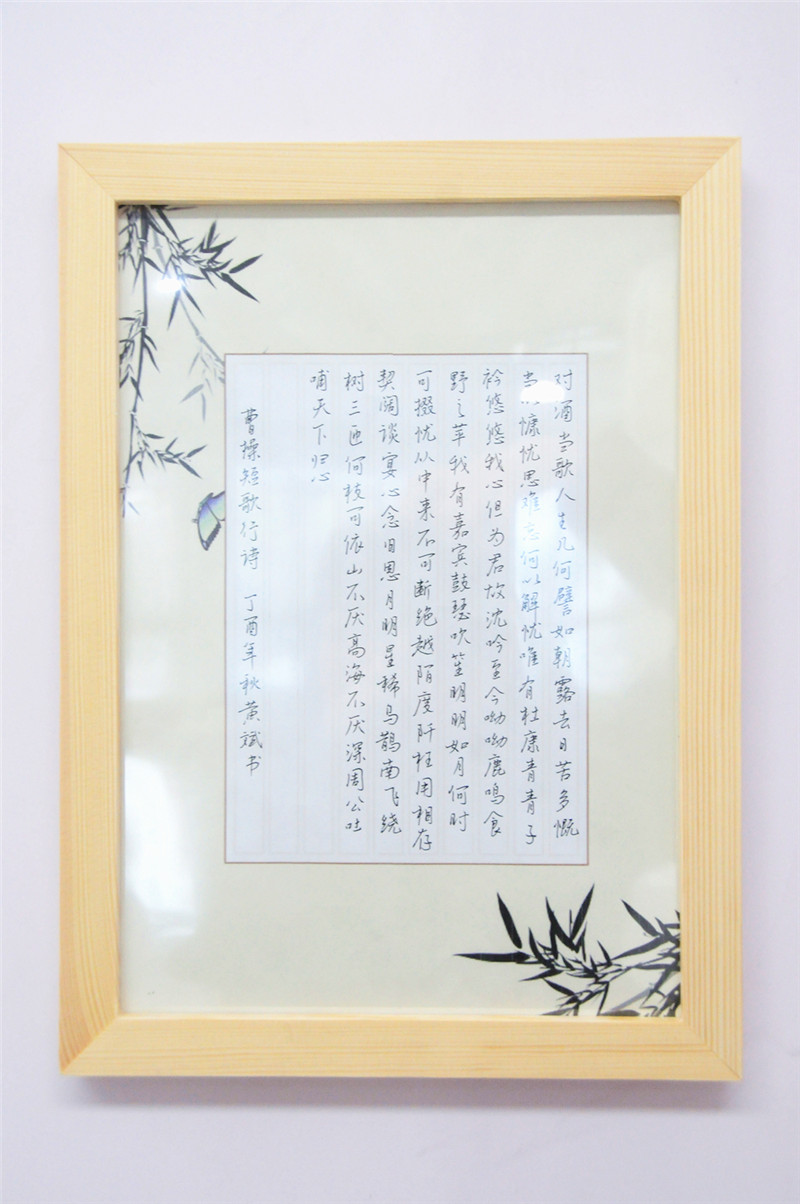 对酒当歌人生几何譬如朝露去日苦多慨
当以慷忧思难忘何以解忧唯有杜康青青子
衿悠悠我心但为君故沈吟至今呦呦鹿鸣食
野之苹我有嘉宾鼓瑟吹笙明明如月何时
可掇忧从中来不可断绝越陌度阡枉用相存
契阔谈宴心念旧恩月明星稀乌鹊南飞绕
树三匝何枝可依山不厌高海不厌深周公吐
哺天下归心
曹操短歌行诗 丁酉年秋黄斌书